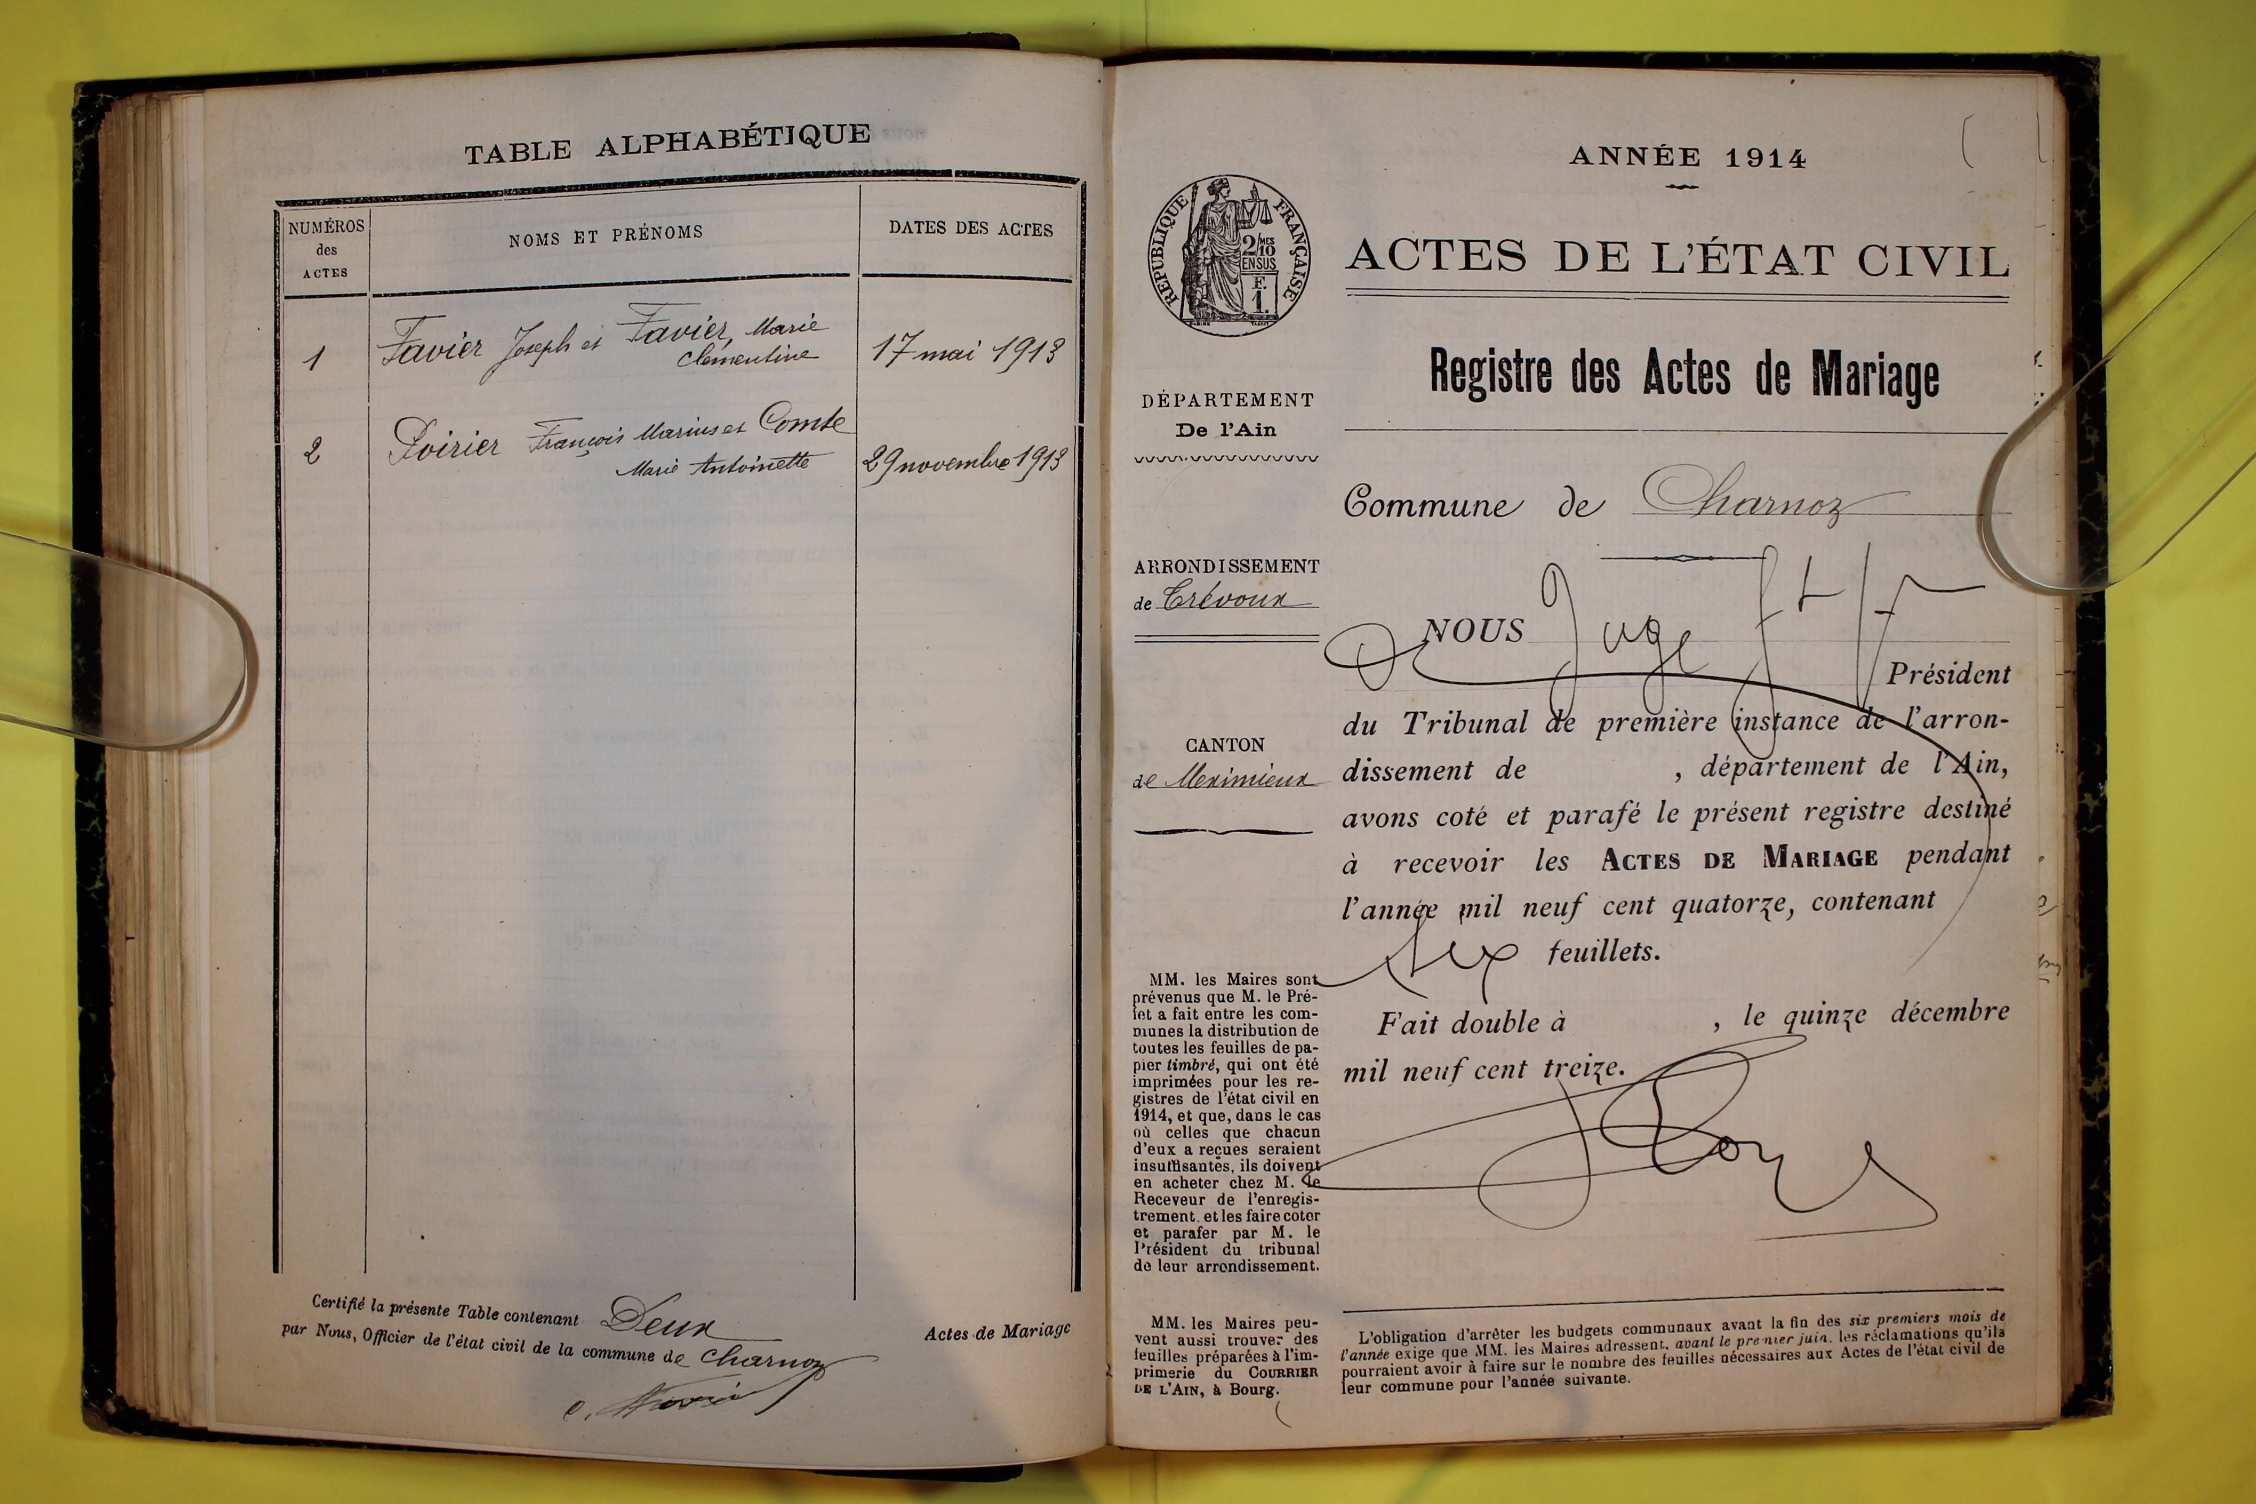 TABLE ALPHABÉTIQUE
NUMÉROS
des
ACTES
NOMS ET PRÉNOMS
DATES DES ACTES
1
Favier Joseph et Favier, Marie
Clémentine
17 mai 1913
2
Poirier François Marius et Comte
Marie Antoinette
29 novembre 1913
Certifié la présente Table contenant Deux
Actes de Mariage
par Nous, Officier de l'état civil de la commune de Charnoz
ANNÉE 1914
RÉPUBLIQUE FRANÇAISE
2/10 MES
EN SUS
F.
1.
ACTES DE L'ÉTAT CIVIL
Registre des Actes de Mariage
DÉPARTEMENT
De l'Ain
Commune de Charnoz
ARRONDISSEMENT
de Trévoux
CANTON
de Meximieux
NOUS Juge
Président
du Tribunal de première instance de l'arron-
dissement de , département de l'Ain,
avons coté et parafé le présent registre destiné
à recevoir les ACTES DE MARIAGE pendant
l'année mil neuf cent quatorze, contenant
six feuillets.
Fait double à , le quinze décembre
mil neuf cent treize.
MM. les Maires sont
prévenus que M. le Pré-
fet a fait entre les com-
munes la distribution de
toutes les feuilles de pa-
pier timbré, qui ont été
imprimées pour les re-
gistres de l'état civil en
1914, et que, dans le cas
où celles que chacun
d'eux a reçues seraient
insuffisantes, ils doivent
en acheter chez M. le
Receveur de l'enregis-
trement, et les faire coter
et parafer par M. le
Président du tribunal
de leur arrondissement.
MM. les Maires peu-
vent aussi trouver des
feuilles préparées à l'im-
primerie du COURRIER
DE L'AIN, à Bourg.
L'obligation d'arrêter les budgets communaux avant la fin des six premiers mois de
l'année exige que MM. les Maires adressent, avant le premier juin, les réclamations qu'ils
pourraient avoir à faire sur le nombre des feuilles nécessaires aux Actes de l'état civil de
leur commune pour l'année suivante.